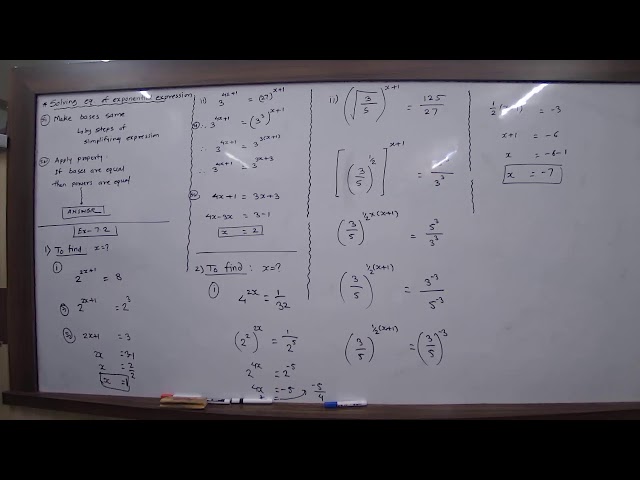 * Solving eq of exponential expression
Make bases same
↳ by steps of
simplifying expression
Apply property:
If bases are equal
then powers are equal
ANSWER
Ex-7.2
1) To find: x=?
①
2^{2x+1} = 8
2^{2x+1} = 2^3
2x+1 = 3
2x = 3-1
x = 2/2
x = 1
ii) 3^{4x+1} = (27)^{x+1}
∴ 3^{4x+1} = (3^3)^{x+1}
∴ 3^{4x+1} = 3^{3(x+1)}
∴ 3^{4x+1} = 3^{3x+3}
4x+1 = 3x+3
4x-3x = 3-1
x = 2
2) To find: x=?
①
4^{2x} = 1/32
(2^2)^{2x} = 1/2^5
2^{4x} = 2^{-5}
4x = -5
-5/4
ii) (√(3/5))^{x+1} = 125/27
[(3/5)^{1/2}]^{x+1} = /3^3
(3/5)^{1/2 x(x+1)} = 5^3/3^3
(3/5)^{1/2(x+1)} = 3^{-3}/5^{-3}
(3/5)^{1/2(x+1)} = (3/5)^{-3}
1/2(x+1) = -3
x+1 = -6
x = -6-1
x = -7